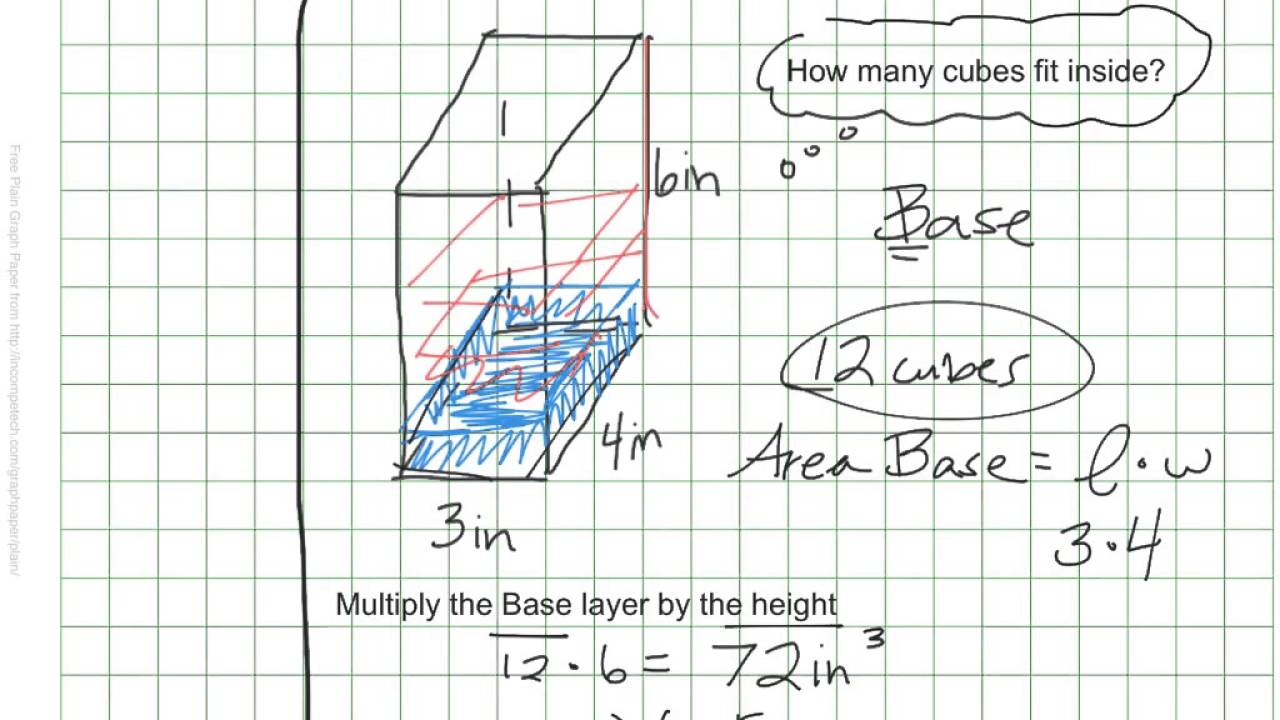 How many cubes fit inside?
6in
Base
12 cubes
4in
Area Base = l · w
3 · 4
3in
Multiply the Base layer by the height
12 · 6 = 72in³
Free Plain Graph Paper from http://incompetech.com/graphpaper/plain/